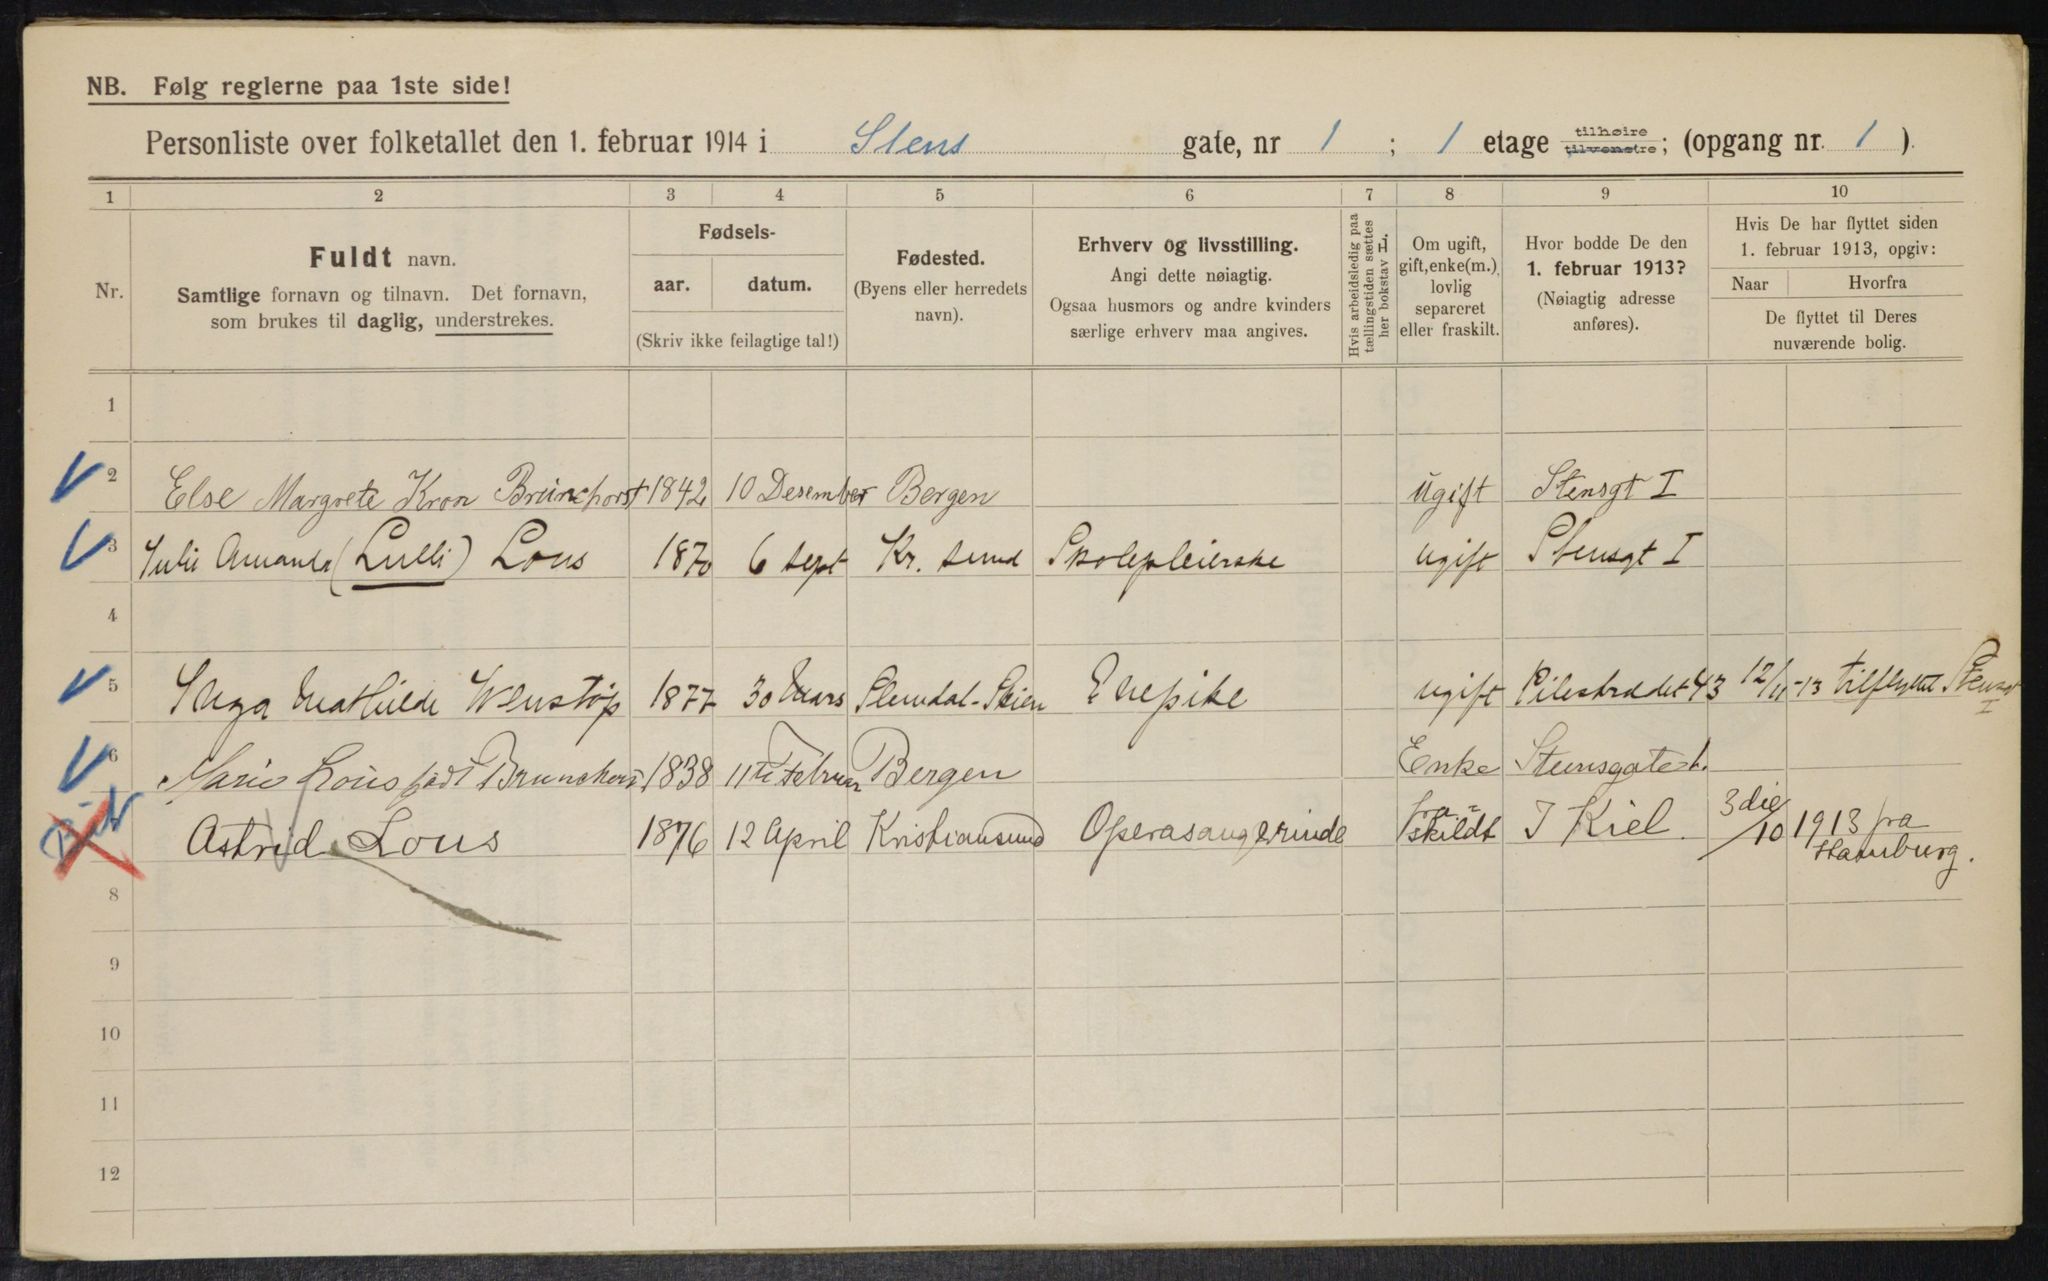 NB. Følg reglerne paa 1ste side!
Personliste over folketallet den 1. februar 1914 i Stens gate, nr 1 ; 1 etage tilhøire tilvenstre; (opgang nr. 1 ).
1 2 3 4 5 6 7 8 9 10
Nr.
Fuldt navn.
Samtlige fornavn og tilnavn. Det fornavn,
som brukes til daglig, understrekes.
Fødsels-
aar. datum.
(Skriv ikke feilagtige tal!)
Fødested.
(Byens eller herredets
navn).
Erhverv og livsstilling.
Angi dette nøiagtig.
Ogsaa husmors og andre kvinders
særlige erhverv maa angives.
Hvis arbeidsledig paa
tællingstiden sættes
her bokstav L.
Om ugift,
gift, enke(m.),
lovlig
separeret
eller fraskilt.
Hvor bodde De den
1. februar 1913?
(Nøiagtig adresse
anføres).
Hvis De har flyttet siden
1. februar 1913, opgiv:
Naar Hvorfra
De flyttet til Deres
nuværende bolig.
1
2 Else Margrete Kron Brunchorst 1842 10 Desember Bergen ugift Stensgt I
3 Amanda (Lulli) Lous 1870 6 sept Kr. sund Skolepleierske ugift Stensgt I
4
5 Mathilde 1877 30 Mars Slemdal-Skien Enepike ugift Pilestrædet 43 12/11-13 tilflyttet Stensgt I
6 Marie Lous født Brunchorst 1838 11te Februar Bergen Enke Stensgate 1.
Astrid Lous 1876 12 April Kristiansund Operasangerinde fraskildt I Kiel. 3die/10 1913 fra
Hamburg.
8
9
10
11
12